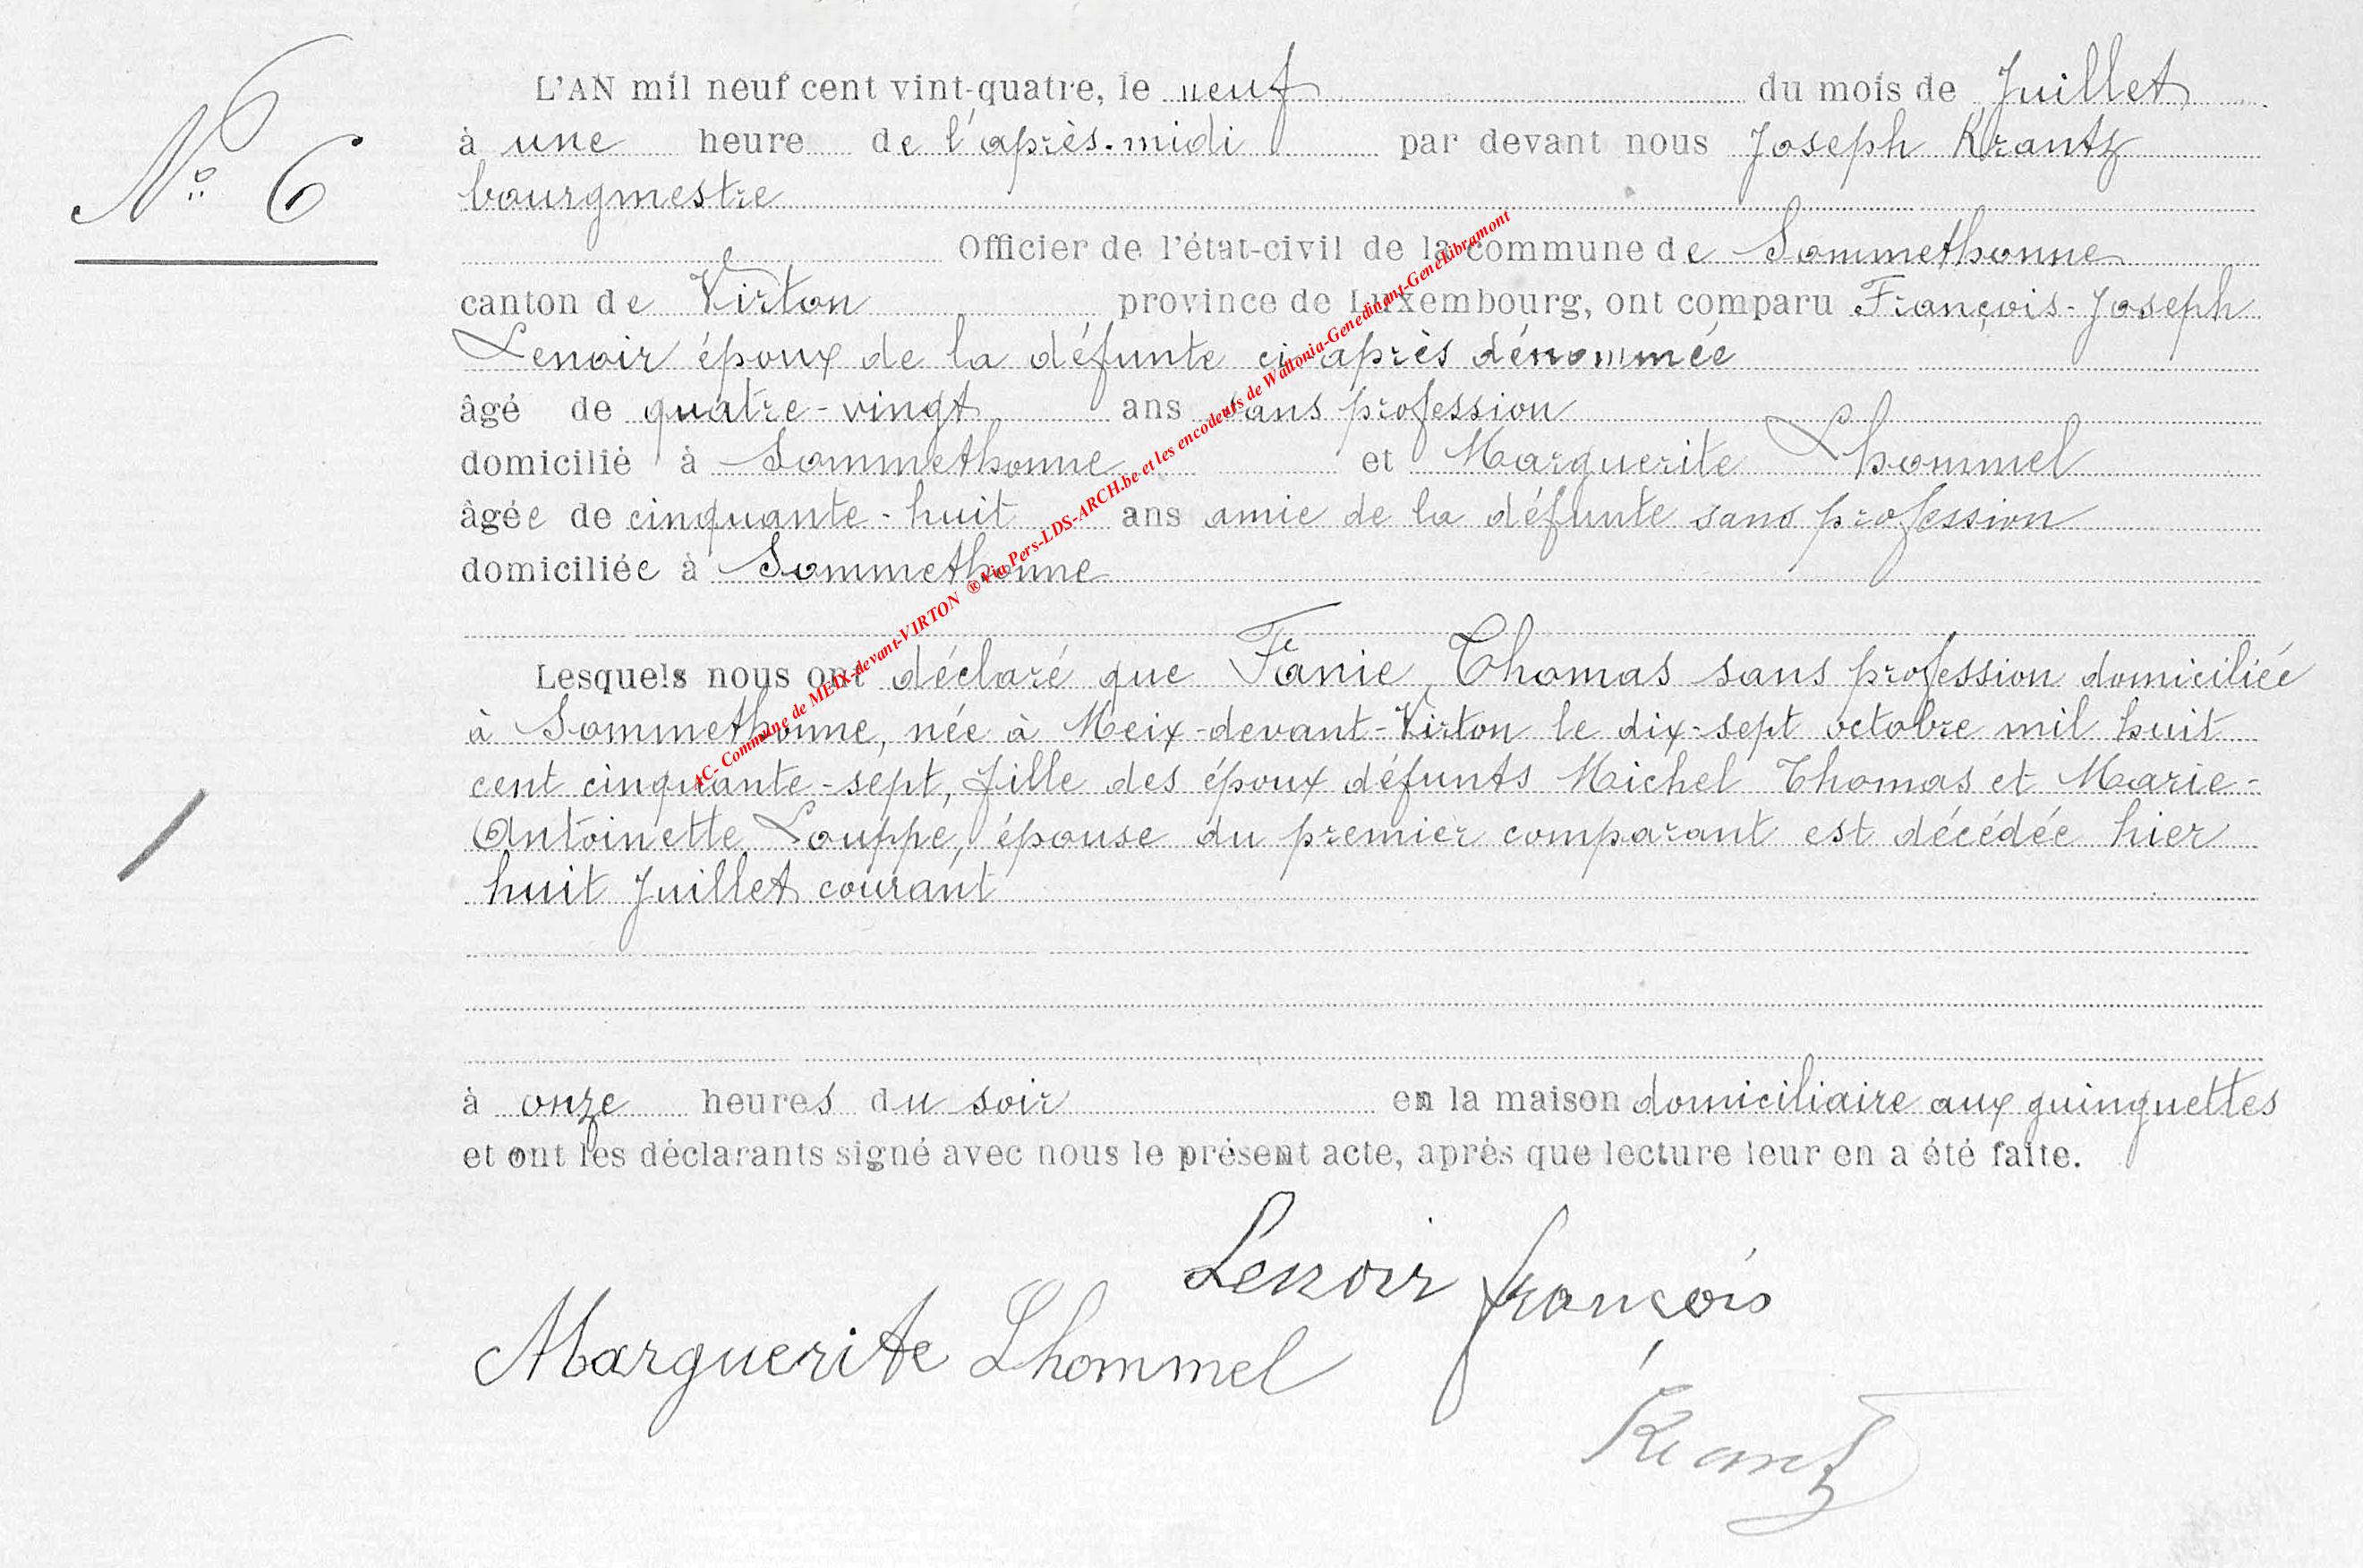 N° 6
L'AN mil neuf cent vint-quatre, le neuf du mois de Juillet
à une heure de l'après-midi par devant nous Joseph Krantz
bourgmestre
Officier de l'état-civil de la commune de Sommethonne
canton de Virton province de Luxembourg, ont comparu François-Joseph
Lenoir époux de la défunte ci-après dénommée
âgé de quatre-vingt ans sans profession
domicilié à Sommethonne et Marguerite Lhommel
âgée de cinquante-huit ans amie de la défunte sans profession
domiciliée à Sommethonne
Lesquels nous ont déclaré que Fanie Thomas sans profession domiciliée
à Sommethonne, née à Meix-devant-Virton le dix-sept octobre mil huit
cent cinquante-sept, fille des époux défunts Michel Thomas et Marie-
Antoinette Louppe, épouse du premier comparant est décédée hier
huit Juillet courant
à onze heures du soir en la maison domiciliaire aux guinguettes
et ont les déclarants signé avec nous le présent acte, après que lecture leur en a été faite.
Lenoir françois
Marguerite Lhommel
Krantz
AC- Commune de MEIX-devant-VIRTON ® Via Pers-LDS-ARCH.be et les encodeurs de Wallonia-Genedinant-GeneLibramont